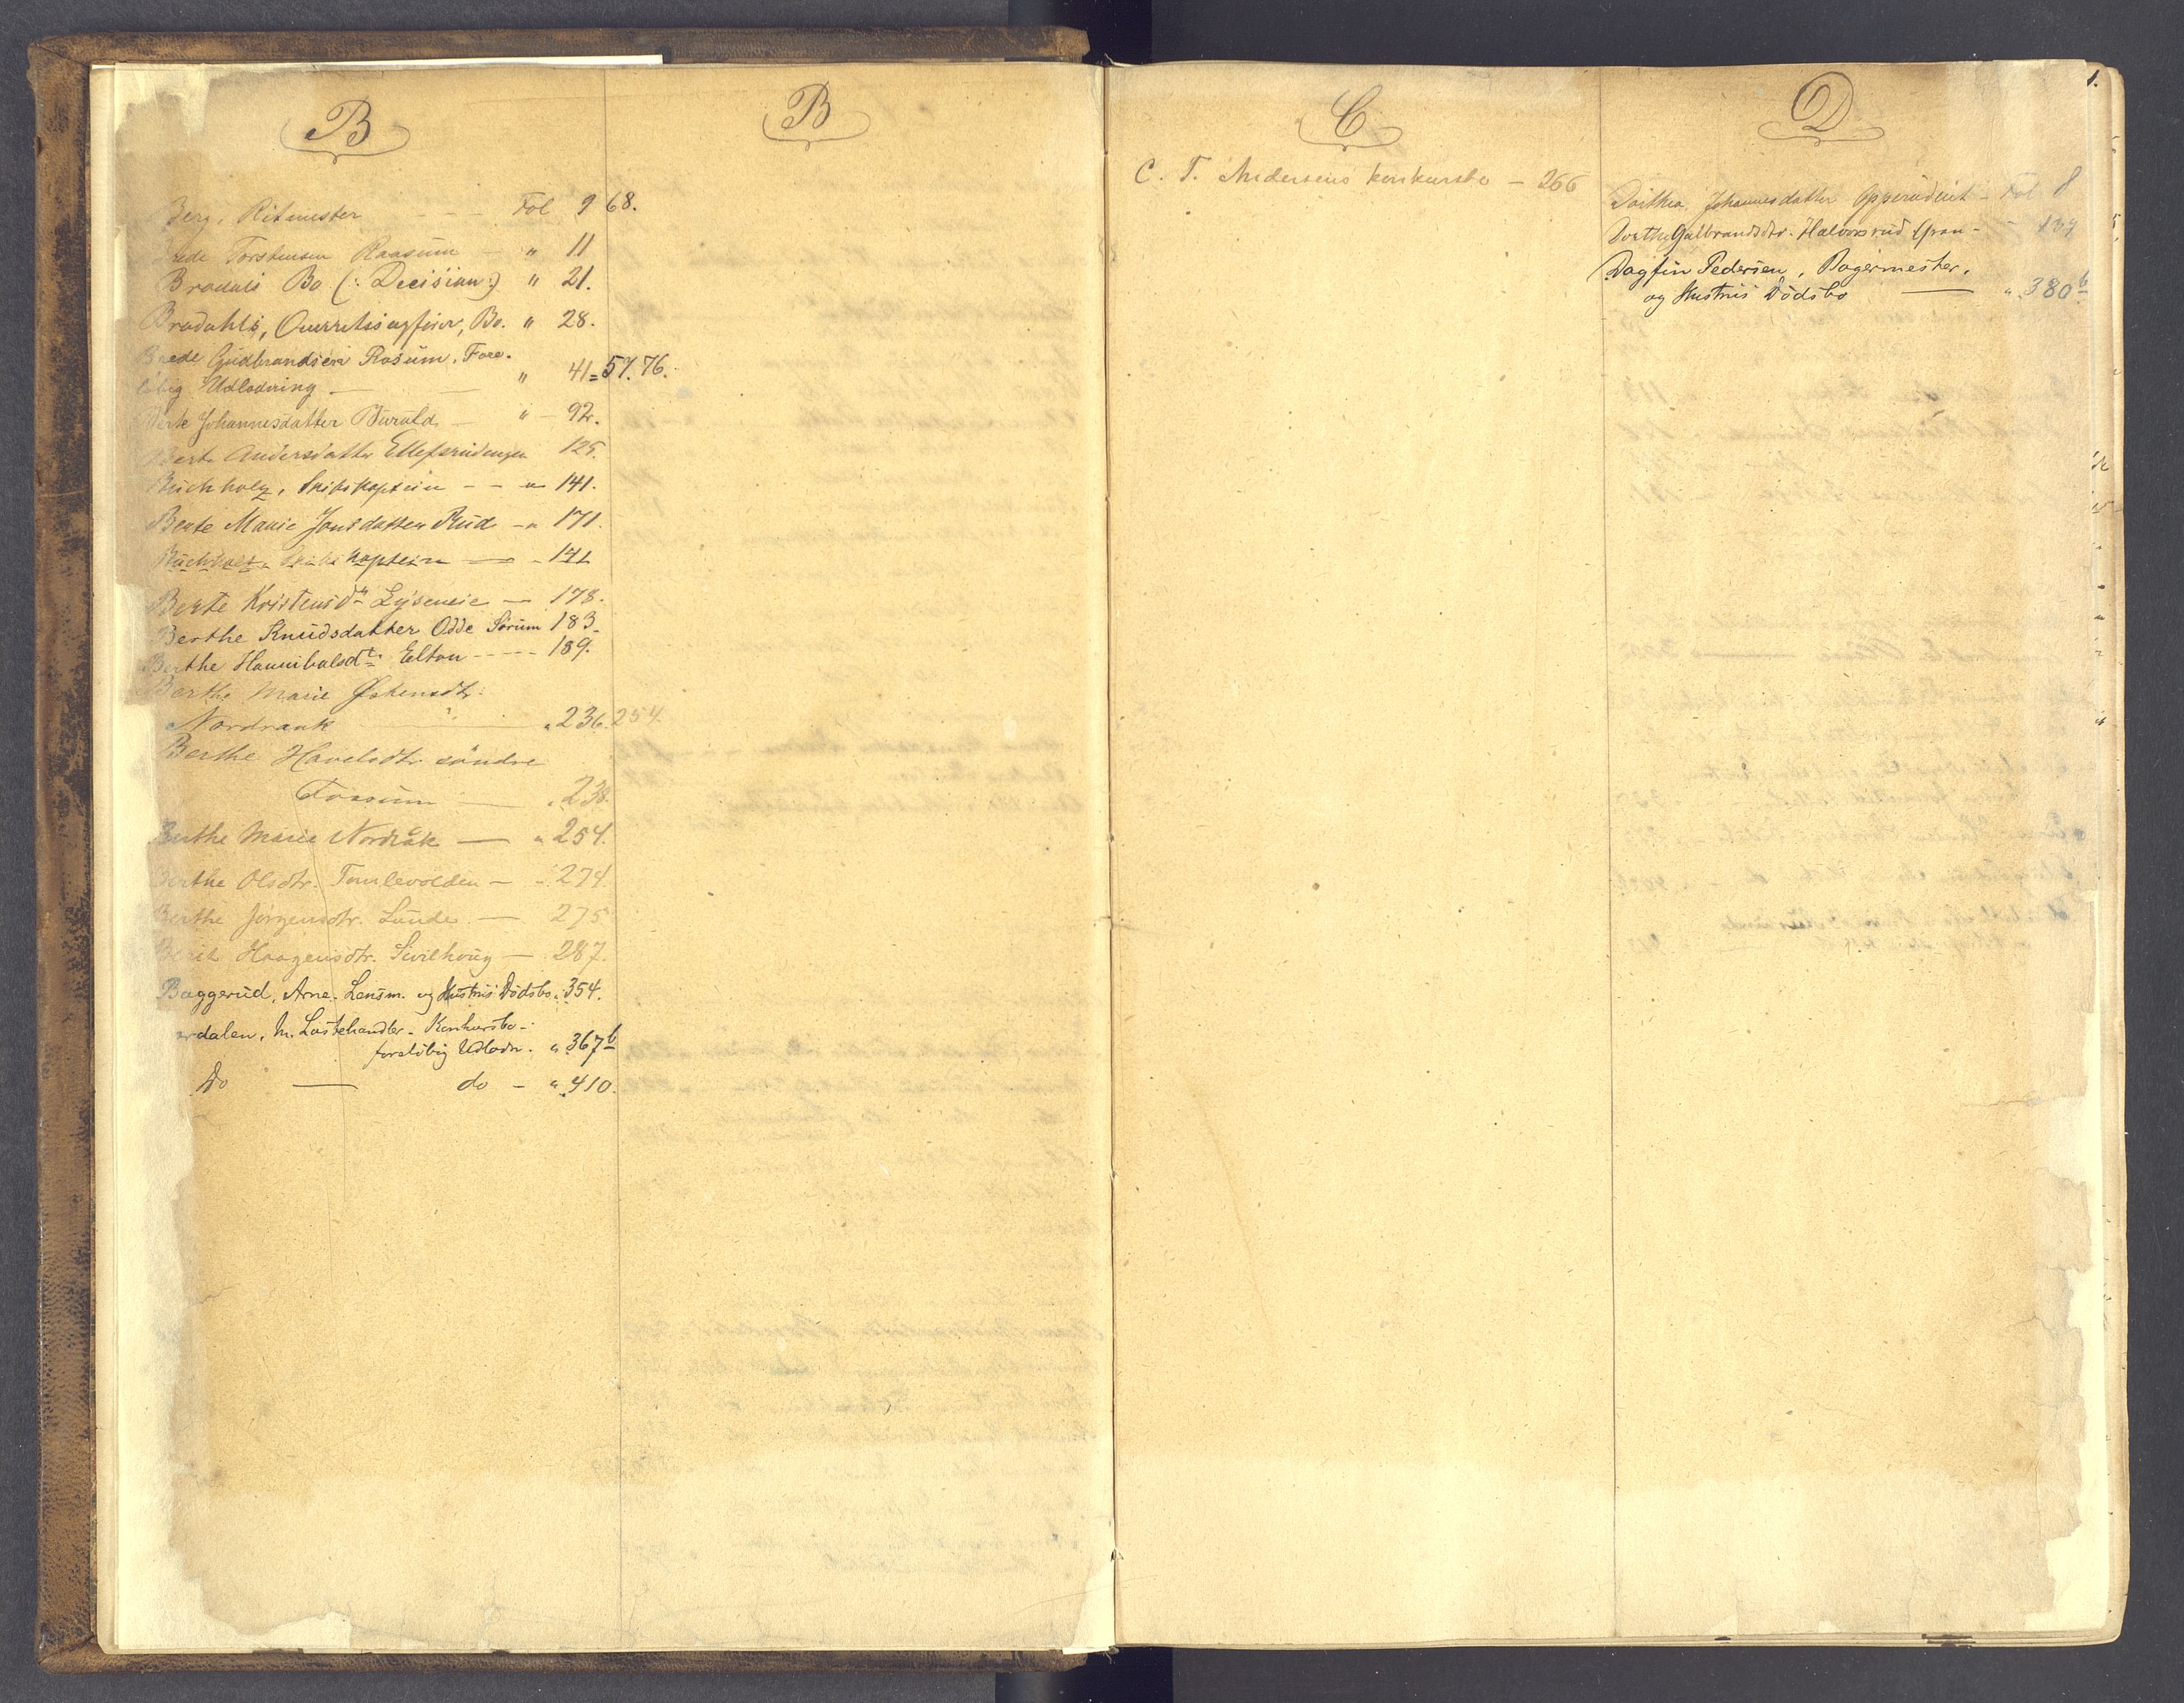 B
Berg, Ritmester - - - Fol 9 68.
Brede Torstensen Raasum - " 11
Brodals Bo (: Decision :) " 21.
Brodahls, Overretssagfører, Bo. " 28.
Brede Gudbrandsen Rosum. Fore-
løbig Udlodning - " 41 = 57. 76.
Berte Johannesdatter - " - 92.
Berte Andersdatter 125.
Buchholz, Skibskaptein - - " 141.
Berte Marie Jonsdatter Rud - " 171.
Buchholz, Skibskaptein - 141
Berte Kristensdtr - 178.
Berthe Knudsdatter Odde Sørum 183.
Berthe Hannibalsdtr. Elton - - - - 189.
Berthe Marie
Nordraak " 236. 254.
Berthe søndre
Fossum - " 238.
Berthe Marie Nordråk - " 254.
Berthe Olsdtr. Tomlevolden - " 274.
Berthe Jørgensdtr. Lunde - 275
Berit Haagensdtr. - 287.
Baggerud, Arne. Lensm. og Hustrus Dødsbo " 354.
rdalen, M. Konkursbo -
foreløbig Udlodn. " 367 b
Do - do - " 410.
B
C
C. T. Andersens konkursbo - 266
D
Dorthea Johannesdatter - Fol 8
Dorthe Gulbrandsdtr. Halvorsrud Gran - 139
Dagfin Pedersen, Bagermester,
og Hustrus Dødsbo - " 380 b
1.